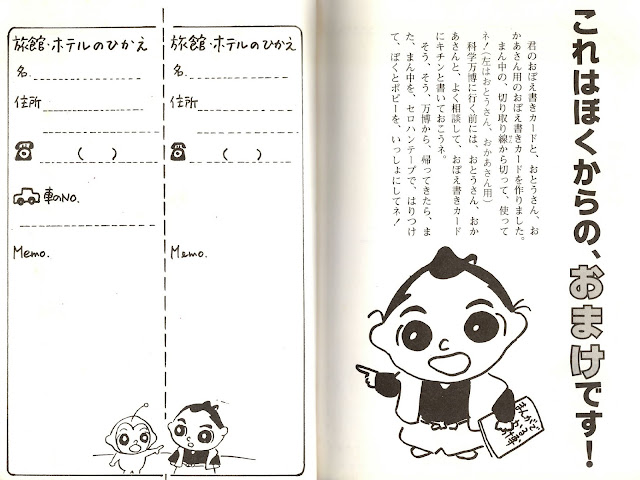 これはぼくからの、おまけです！
君のおぼえ書きカードと、おとうさん、お
かあさん用のおぼえ書きカードを作りました。
まん中の、切り取り線から切って、使って
ネ！（左はおとうさん、おかあさん用）
科学万博に行く前には、おとうさん、おか
あさんと、よく相談して、おぼえ書きカード
にキチンと書いておこうネ。
そう、そう、万博から、帰ってきたら、ま
た、まん中を、セロハンテープで、はりつけ
て、ぼくとポピーを、いっしょにしてネ！
まんがで
旅館・ホテルのひかえ
名
住所
☎ （ ）
車のNO.
Memo.
旅館・ホテルのひかえ
名
住所
☎ （ ）
Memo.